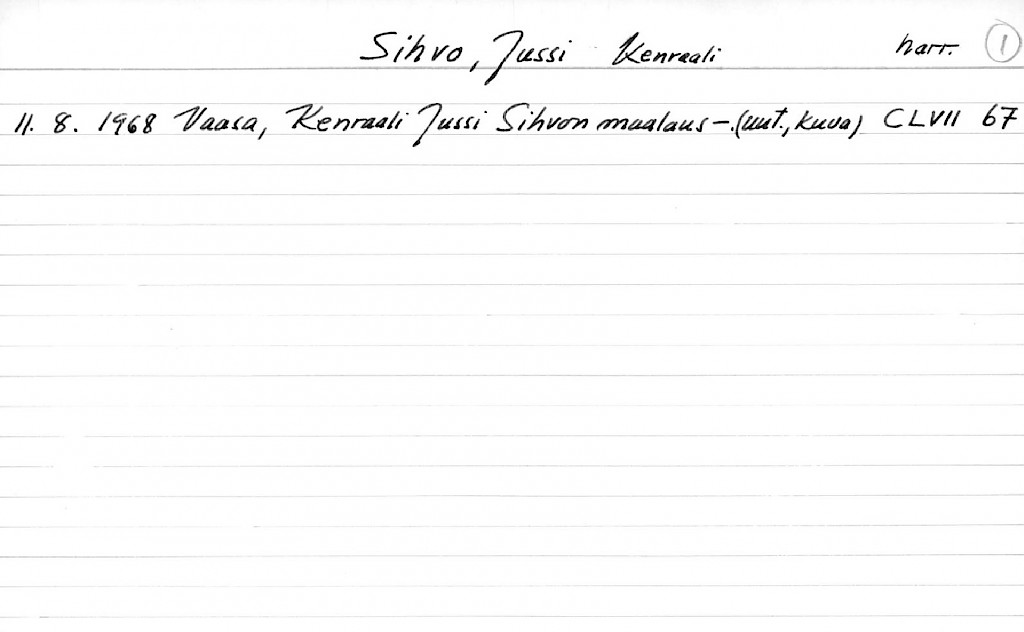 Sihvo, Jussi Kenraali harr. 1
11. 8. 1968 Vaasa, Kenraali Jussi Sihvon maalaus-. (uut., kuva) CLVII 67